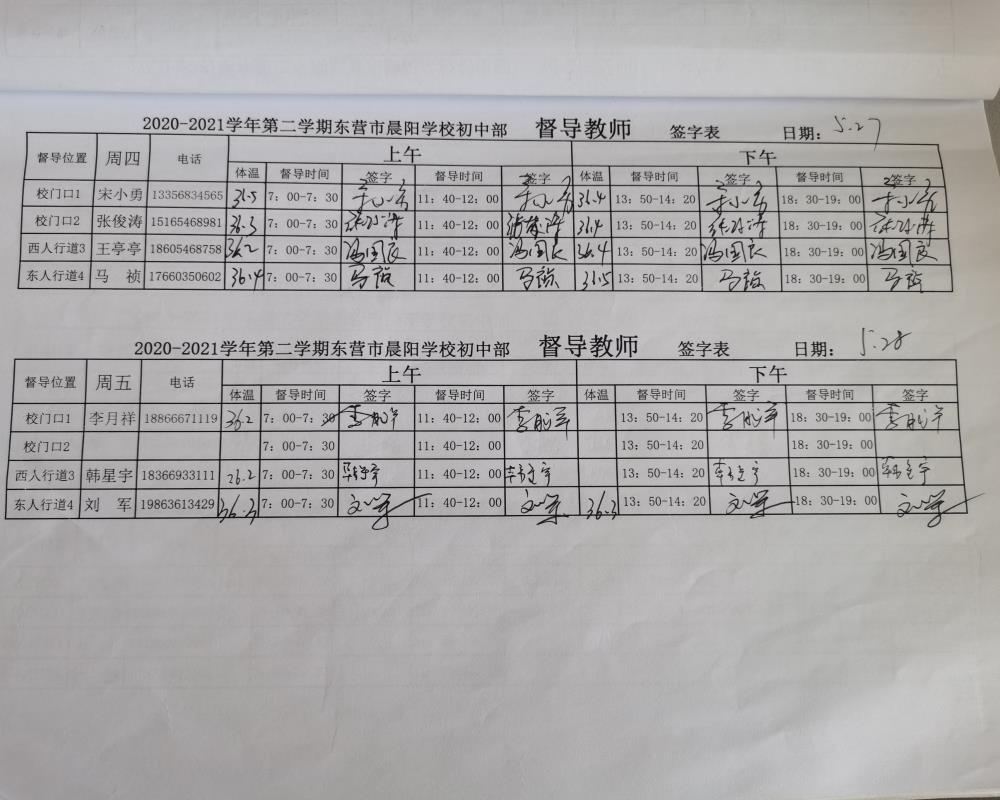 2020-2021学年第二学期东营市晨阳学校初中部 督导教师 签字表 日期: 5.27
督导位置 周四 电话 上午 下午
体温 督导时间 签字 督导时间 签字 体温 督导时间 签字 督导时间 签字
校门口1 宋小勇 13356834565 36.5 7: 00-7: 30 11: 40-12: 00 36.4 13: 50-14: 20 18: 30-19: 00
校门口2 张俊涛 15165468981 36.3 7: 00-7: 30 张俊涛 11: 40-12: 00 张俊涛 36.4 13: 50-14: 20 张俊涛 18: 30-19: 00 张俊涛
西人行道3 王亭亭 18605468758 36.2 7: 00-7: 30 冯国良 11: 40-12: 00 冯国良 36.4 13: 50-14: 20 冯国良 18: 30-19: 00 冯国良
东人行道4 马 祯 17660350602 36.4 7: 00-7: 30 马祯 11: 40-12: 00 马祯 36.5 13: 50-14: 20 马祯 18: 30-19: 00 马祯
2020-2021学年第二学期东营市晨阳学校初中部 督导教师 签字表 日期: 5.28
督导位置 周五 电话 上午 下午
体温 督导时间 签字 督导时间 签字 体温 督导时间 签字 督导时间 签字
校门口1 李月祥 18866671119 36.2 7: 00-7: 30 李月祥 11: 40-12: 00 李月祥 13: 50-14: 20 李月祥 18: 30-19: 00 李月祥
校门口2 7: 00-7: 30 11: 40-12: 00 13: 50-14: 20 18: 30-19: 00
西人行道3 韩星宇 18366933111 36.2 7: 00-7: 30 韩星宇 11: 40-12: 00 韩星宇 13: 50-14: 20 韩星宇 18: 30-19: 00 韩星宇
东人行道4 刘 军 19863613429 36.3 7: 00-7: 30 刘军 11: 40-12: 00 刘军 36.3 13: 50-14: 20 刘军 18: 30-19: 00 刘军